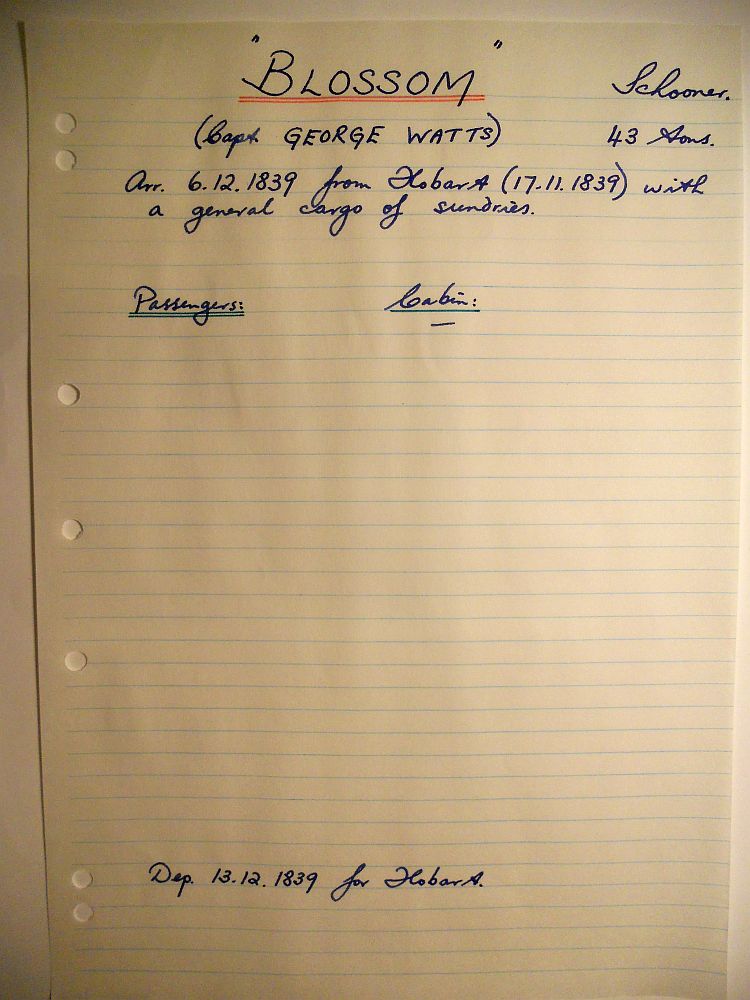 "BLOSSOM" Schooner.
(Capt GEORGE WATTS) 43 tons.
Arr. 6.12.1839 from Hobart (17.11.1839) with
a general cargo of sundries.
Passengers: Cabin:
—
Dep. 13.12.1839 for Hobart.